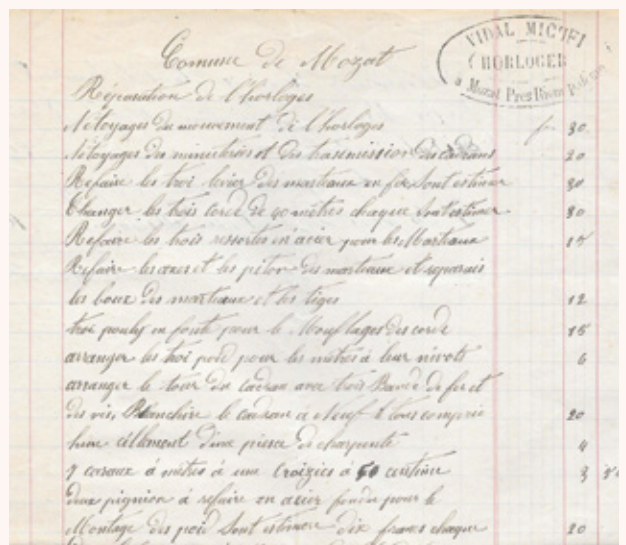 Comune de Mozat
VIDAL MICHEL
HORLOGER
a Mozat Près Riom
Réparation de l'horloges
Netoyages du mouvement de l'horloges fr 30
Netoyages des minuteries et des trasmission des cadrans 20
Refaire les troi levier des marteaux en fer sont estimer 30
Changer les trois corde de 40 mètres chaque sont estimer 80
Refaire les trois ressortes en acier pour les Marteaux 15
Refaire les axes et les piton des marteaux et
les boux des marteaux et les tiges 12
troi poulis en fonte pour le Mouflages des corde 15
arranger les troi poid pour les mètres à leur nivots 6
arranger le tour du cadran avec trois Bande de fer et
des vis, Blanchire le cadran a Neuf tous comprie 20
d'une pierce de charpente 4
7 caraux à mètres à une Croizies à 50 centime 3
deux pignion à refaire en acier fondu pour le
Montage des poid sont estimer dix francs chaque 20